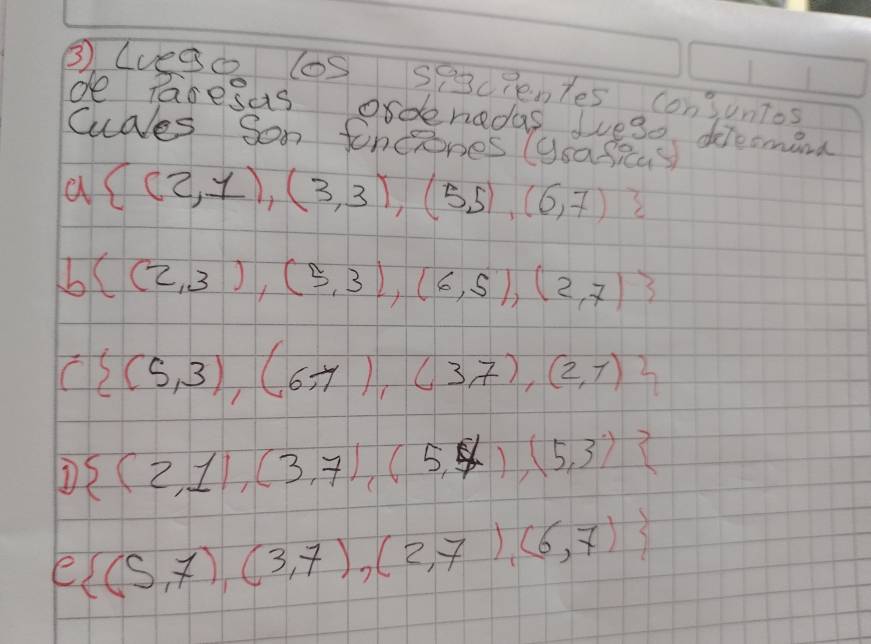 3) Luego los siguientes conjuntos
de Parejas ordenadas Luego determina
Cuales son funciones (graficas)
a { (2,1), (3,3), (5,5), (6,7) }
b { (2,3), (5,3), (6,5), (2,7) }
C { (5,3), (6,1), (3,7), (2,1) }
D { (2,1), (3,7), (5, ), (5,3) }
e { (5,7), (3,7), (2,7), (6,7) }